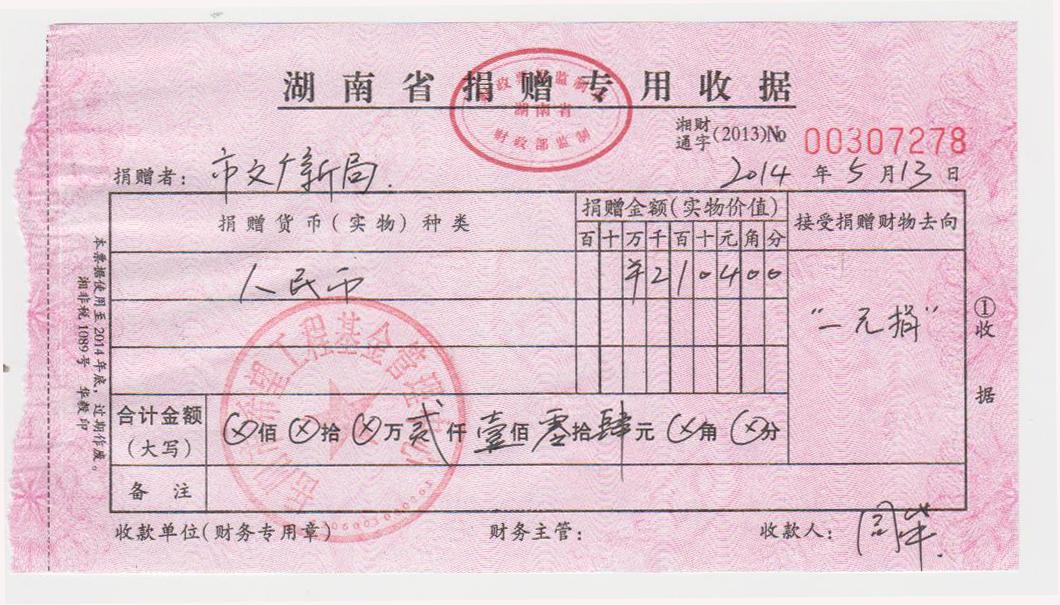 湖南省捐赠专用收据
湖南省
财政部监制
湘财通字(2013)No 00307278
捐赠者：市文广新局. 2014年5月13日
捐赠货币(实物)种类 捐赠金额(实物价值) 接受捐赠财物去向
百十万千百十元角分
人民币 ¥210400 "一元捐"
合计金额(大写) ⊗佰⊗拾⊗万贰仟壹佰零拾肆元⊗角⊗分
备注
收款单位(财务专用章) 财务主管： 收款人：
本票据使用至2014年底，过期作废。
湘非税1089号 华毅印
①收据
希望工程基金管理